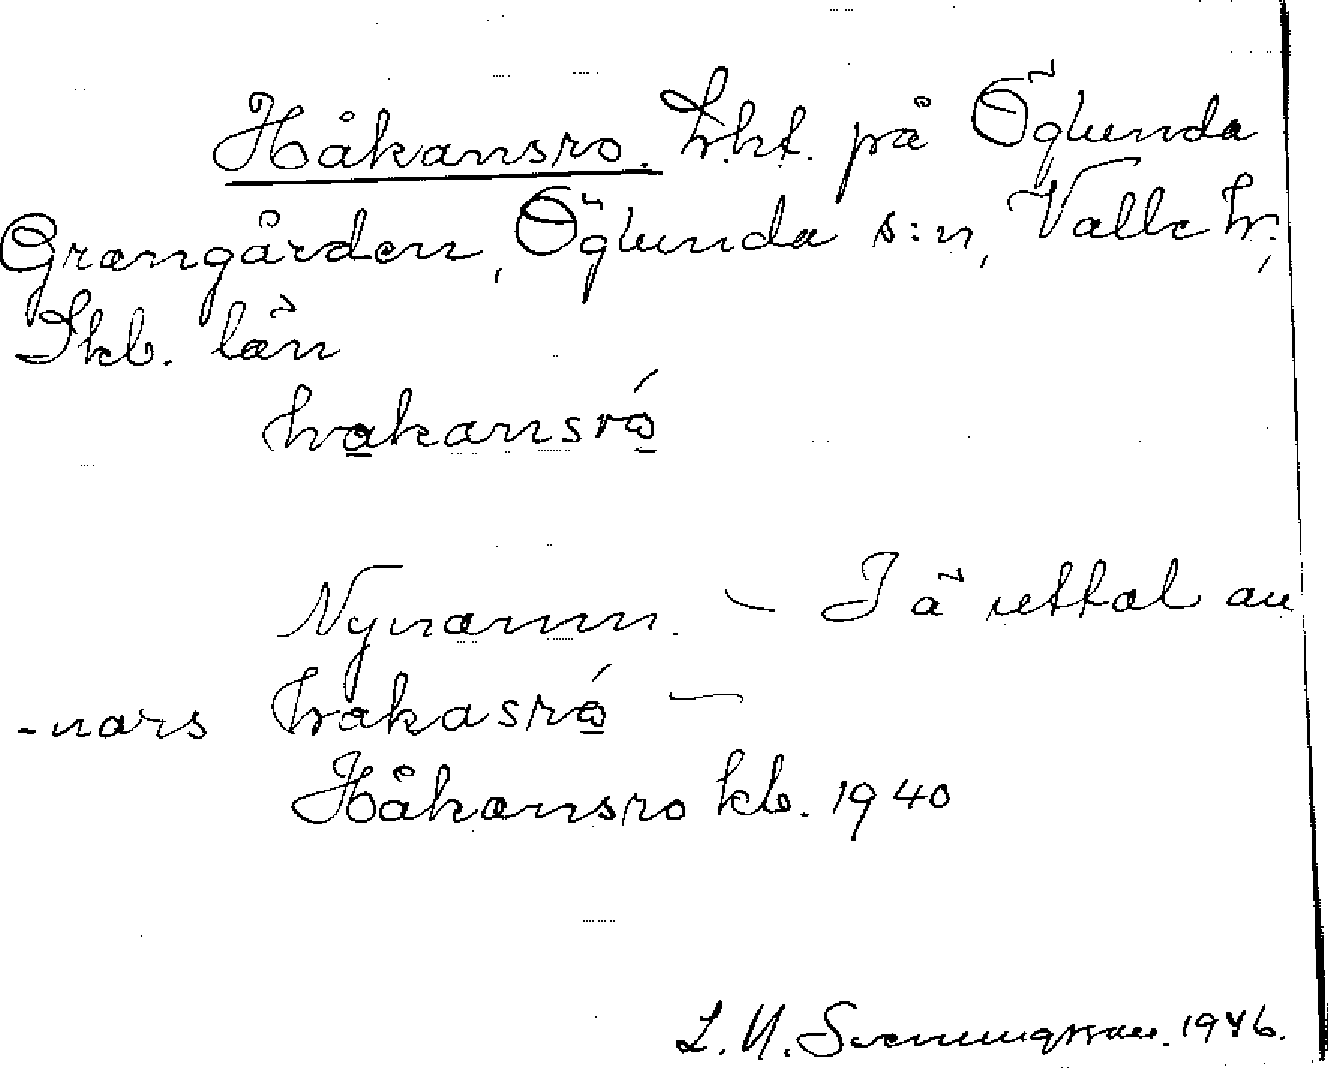 Håkansro. Lht. på Öglunda
Grangården, Öglunda s:n, Valle h.,
Skb. län
hakansró
Nynamn. – I ä uttal an
-nars hakasró –
Håkansro kb. 1940
L. N. Svenungsson. 1946.